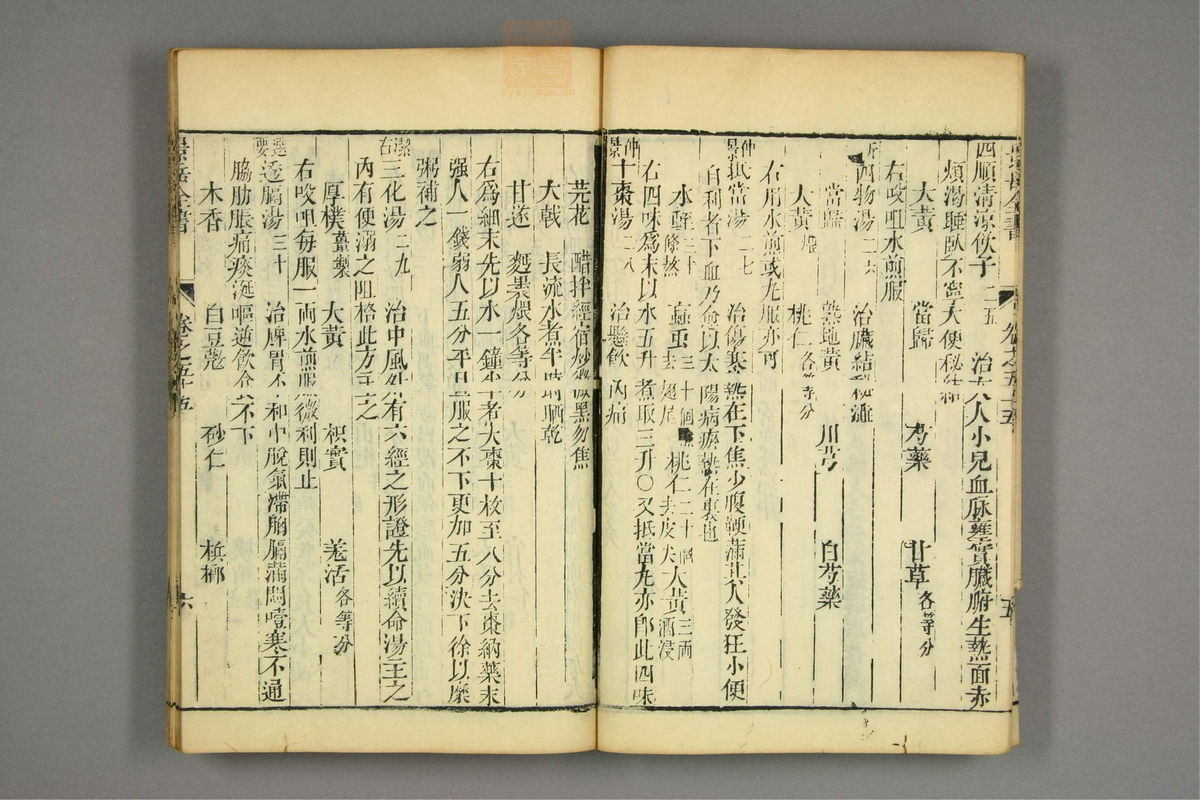 四順清涼飲子二五　治大人小兒血脉壅實臟腑生熱面赤
煩渴睡臥不寧大便秘結
大黃　當歸　芍藥　甘草各等分
右㕮咀水煎服
四物湯二六　治臟結秘澁
當歸　熟地黃　川芎　白芍藥
大黃煨　桃仁各等分
右用水煎或丸服亦可
仲景抵當湯二七　治傷寒熱在下焦少腹鞕滿其人發狂小便
自利者下血乃愈以太陽病瘀熱在裏也
水蛭三十條熬　蝱蟲三十個去翅尾　桃仁二十個去皮尖　大黃三兩酒浸
右四味爲末以水五升煮取三升〇又抵當丸亦郎此四味
仲景十棗湯二八　治懸飲內痛
芫花　醋拌經宿炒微黑勿焦
大戟　長流水煮半時晒乾
甘遂　麪裹煨各等分
右爲細末先以水一鐘半者大棗十枚至八分去棗納藥末
强人一錢弱人五分平旦服之不下更加五分決下徐以糜
粥補之
潔古三化湯二九　治中風外有六經之形證先以續命湯主之
內有便溺之阻格此方主之
厚樸薑製　大黃　枳實　羌活各等分
右㕮咀每服一兩水煎服微利則止
選要透膈湯三十　治脾胃不和中脫氣滯胸膈滿悶噎塞不通
脇肋脹痛痰涎嘔逆飲食不下
木香　白豆蔻　砂仁　檳榔
景岳全書　卷之五十五　五
景岳全書　卷之五十五　六